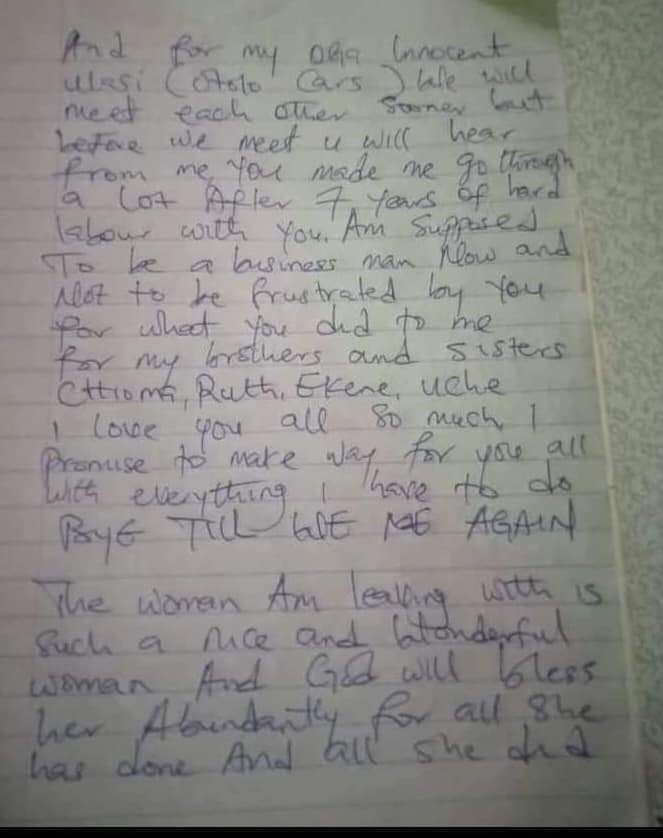 And for my oga Innocent
ulasi (Otolo Cars) We will
meet each other sooner but
before we meet u will hear
from me, You made me go through
a lot After 7 years of hard
labour with you. Am Supposed
To be a business man Now and
Not to be frustrated by you
for what you did to me
for my brothers and sisters
Chioma, Ruth, Ekene, uche
I love you all so much I
Promise to make way for you all
with everything I have to do
ByE TILL WE AGAIN
The woman Am leaving with is
Such a nice and Wonderful
woman And God will bless
her Abundantly for all She
has done And all she did